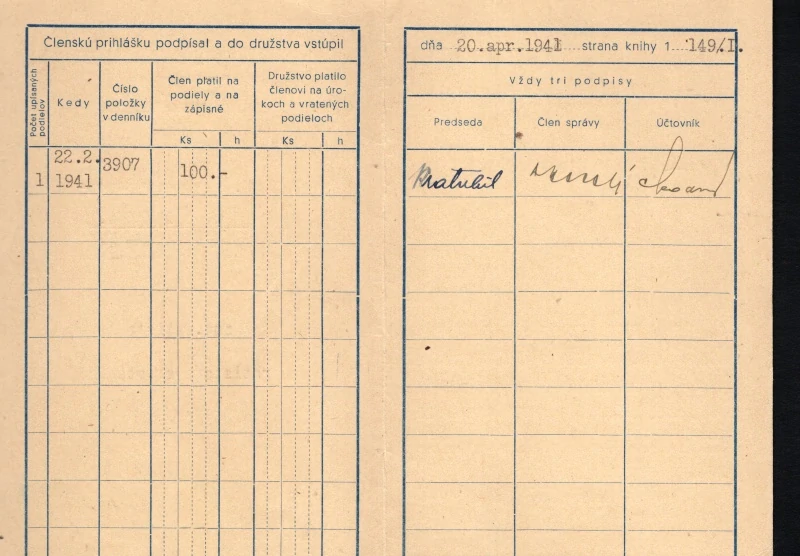 Členskú prihlášku podpísal a do družstva vstúpil
Počet upísaných podielov
Kedy
Číslo
položky
v denníku
Člen platil na
podiely a na
zápisné
Družstvo platilo
členovi na úro-
koch a vratených
podieloch
Ks h Ks h
22.2.
1 1941 3907 100.-
dňa 20.apr.1941 strana knihy 1 149/I.
Vždy tri podpisy
Predseda Člen správy Účtovník